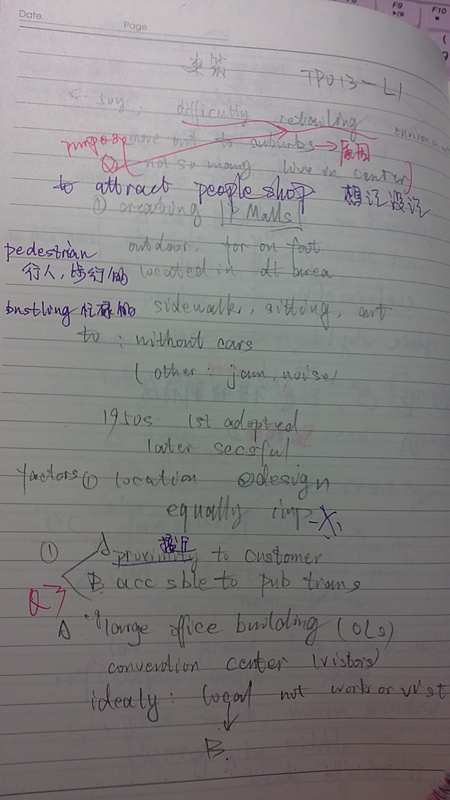 F9
F10
Date.
Page
TPO13-L1
difficulty retailing
purpose move out to suburbs → 原因
② not so many live in center
to attract people shop 想记没记
① creating P Malls
pedestrian outdoor. for on foot
行人,步行的 located in dt
bustling 忙碌的 sidewalk, sitting, art
to : without cars
(other : jam, noise)
1950s: 1st adopted
later
factors ① location ② design
equally imp
① A proximity 接近 to customer
B. acc sble to pub trans
Q3
A large office building (OLs)
convention center (vistors)
idealy: local not work or vist
B.